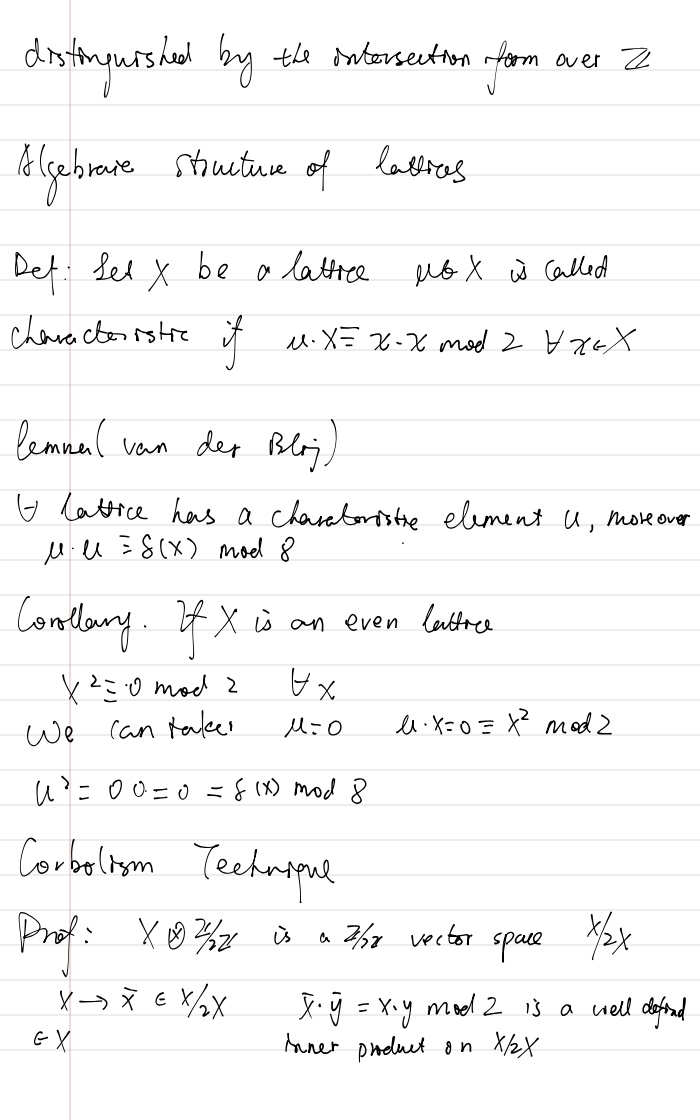 distinguished by the intersection form over ℤ
Algebraic structure of lattices
Def: Let X be a lattice μ∈X is called
characteristic if μ·X≡ x·x mod 2 ∀ x∈X
lemma (van der Blij)
∀ lattice has a characteristic element u, moreover
μ·u ≡ δ(X) mod 8
Corollary. If X is an even lattice
X² ≡ 0 mod 2 ∀ x
We can take μ=0 u·x=0 ≡ x² mod 2
u² = 0 0 = 0 = δ(X) mod 8
Corbolism Technique
Prof: X ⊗ ℤ/2ℤ is a ℤ/2ℤ vector space X/2X
X → x̄ ∈ X/2X x̄·ȳ = x·y mod 2 is a well defind
∈ X inner product on X/2X